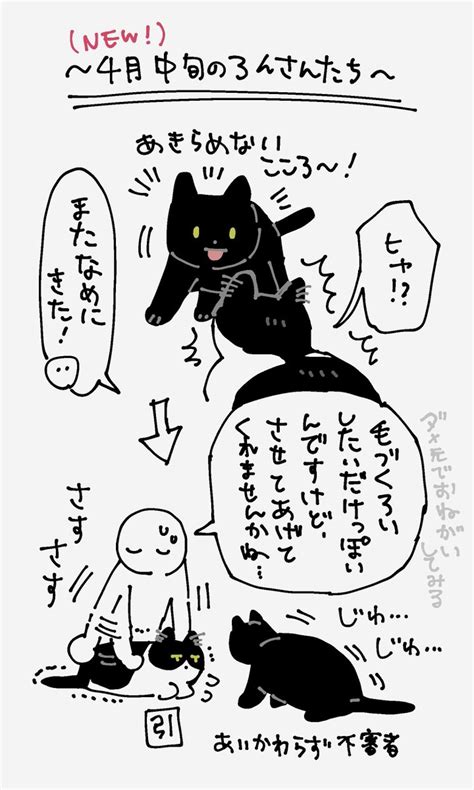 (NEW!)
～4月中旬のろんさんたち～
あきらめない
こころ～!
またなめに
きた!
ヒャ!?
毛づくろい
したいだけっぽい
んですけど、
させてあげて
くれませんかね…
ダメ元でおねがい
してみる
さす
さす
じわ…
じわ…
引
あいかわらず不審者